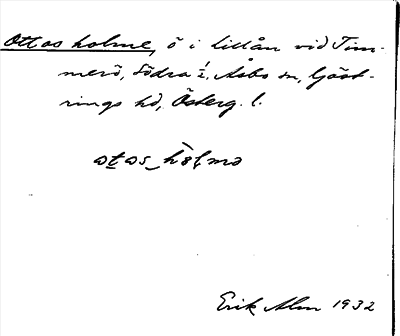 Ottos holme, ö i Lillån vid Tim-
merö, Södra ½, Åsbo sn, Göst-
rings hd, Österg. l.
otos_holmə
Erik Alm 1932